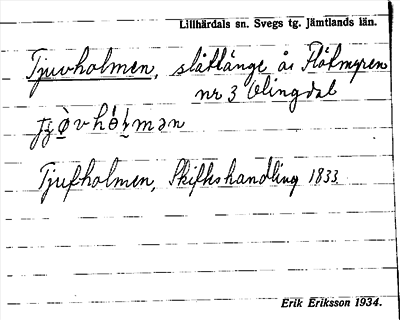 Lillhärdals sn. Svegs tg. Jämtlands län.
Tjuvholmen, slåttänge å Flötmyren
nr 3 Olingdal
Tjufholmen, Skifteshandling 1833
Erik Eriksson 1934.